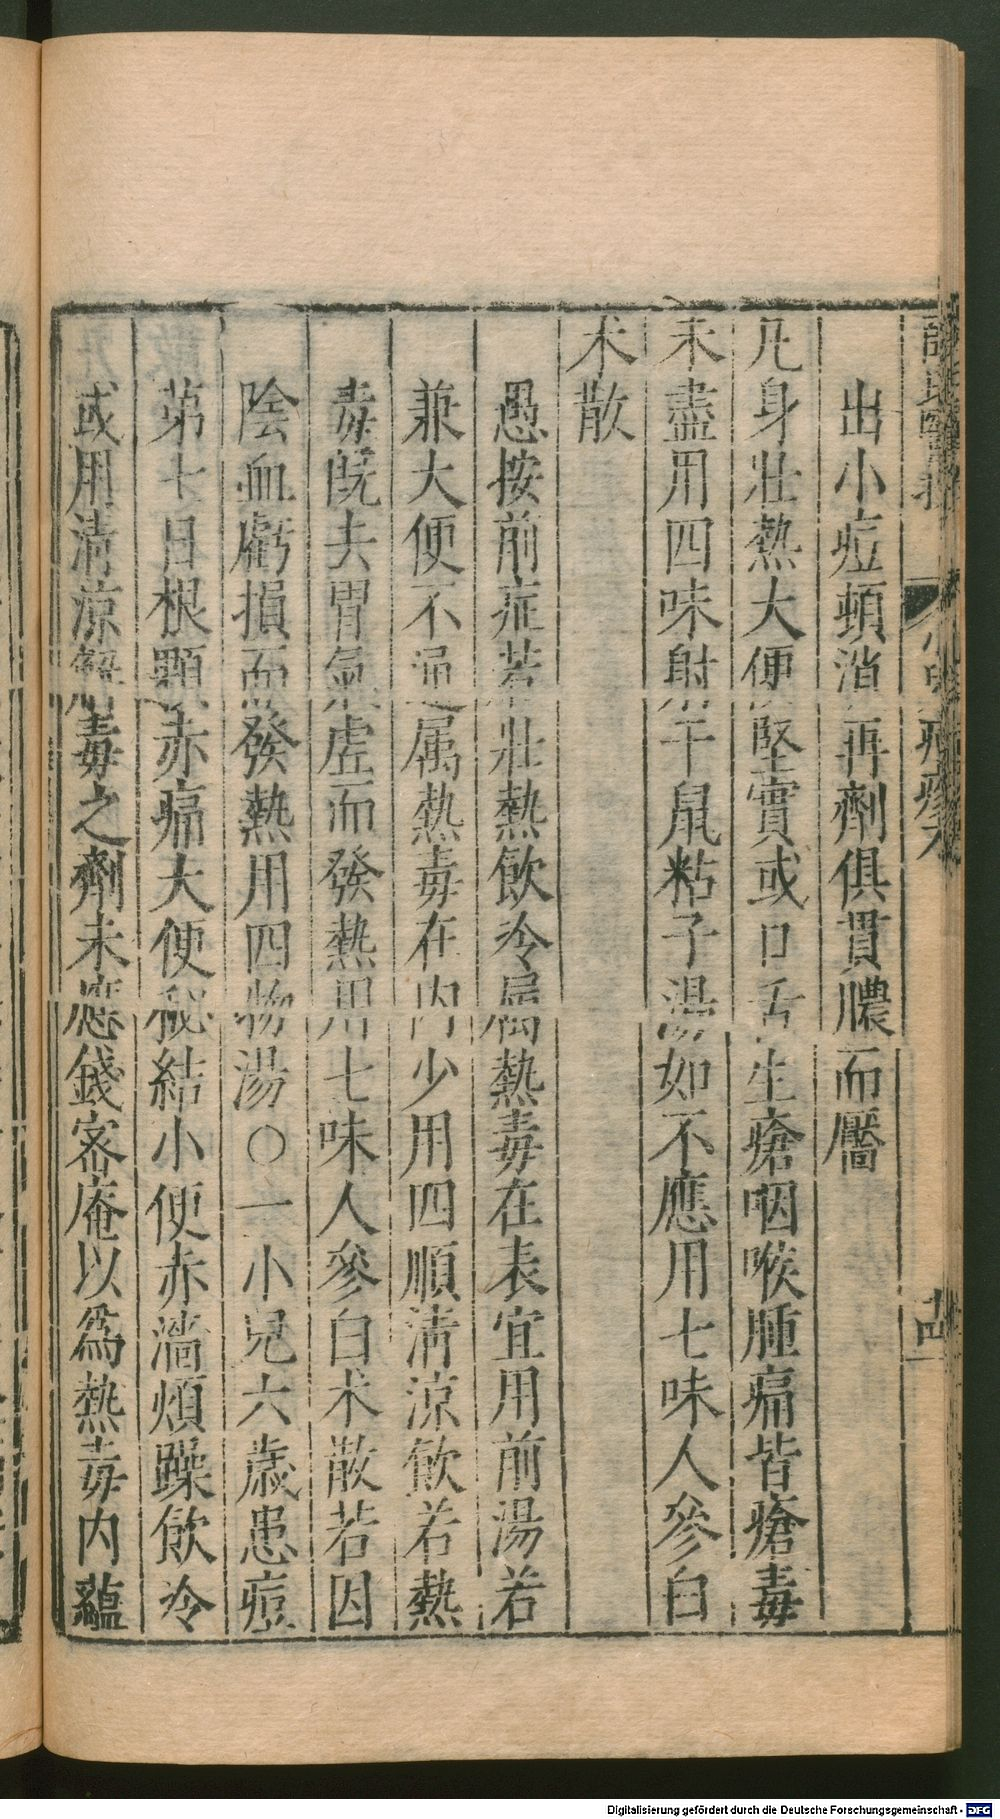 出小痘頓消再劑俱貫膿而靨
凢身壯熱大便堅實或口舌生瘡咽喉腫痛皆瘡毒
未盡用四味射干鼠粘子湯如不應用七味人參白
术散
愚按前症若壯熱飲冷屬熱毒在表宜用前湯若
兼大便不通属熱毒在内少用四順清涼飲若熱
毒既去胃氣虛而發熱用七味人參白术散若因
陰血虧損而發熱用四物湯○一小兒六歲患痘
第七日根顆赤痛大便秘結小便赤濇煩躁飲冷
或用清涼解毒之劑未應錢密庵以爲熱毒内蘊
Digitalisierung gefördert durch die Deutsche Forschungsgemeinschaft - DFG